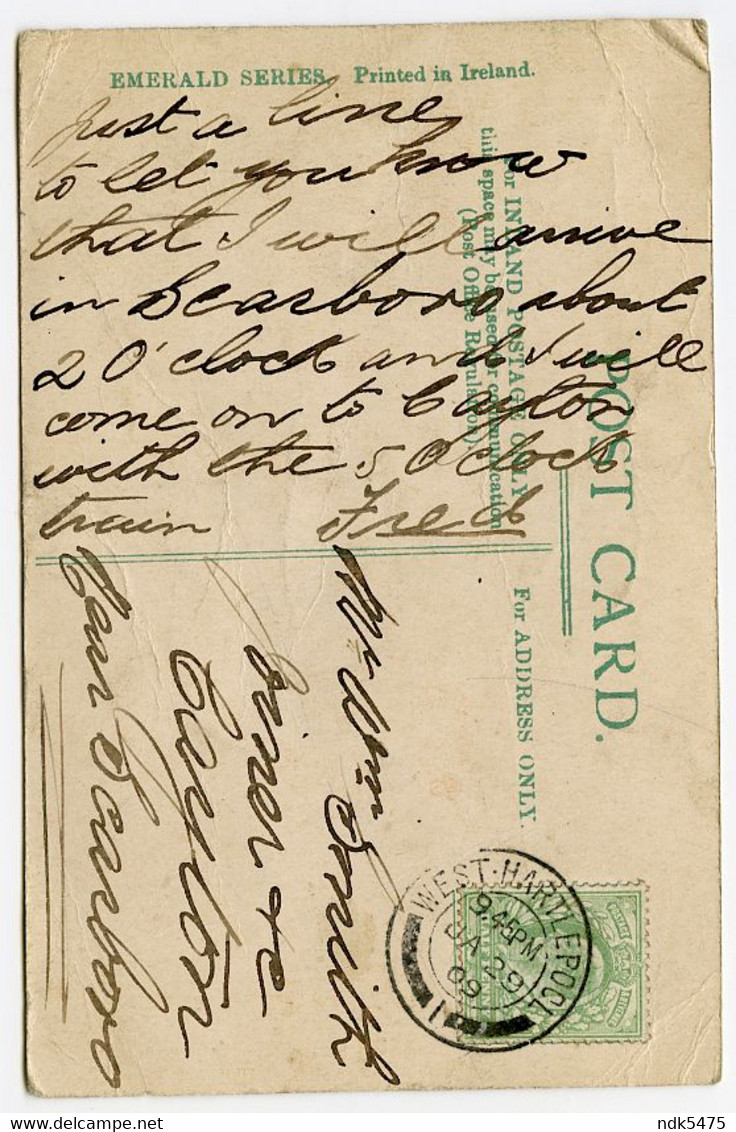 EMERALD SERIES. Printed in Ireland.
Just a line
to let you know
that I will arrive
in Scarboro about
2 O'clock and I will
come on to Cayton
with the 5 O clock
train Fred
POST CARD.
For INLAND POSTAGE ONLY
this space may be used for communication
(Post Office Regulation)
For ADDRESS ONLY.
Mr Wm Smith
Cayton
Near Scarboro
WEST-HARTLEPOOL
9.45PM
JA 29
09
1
ndk5475